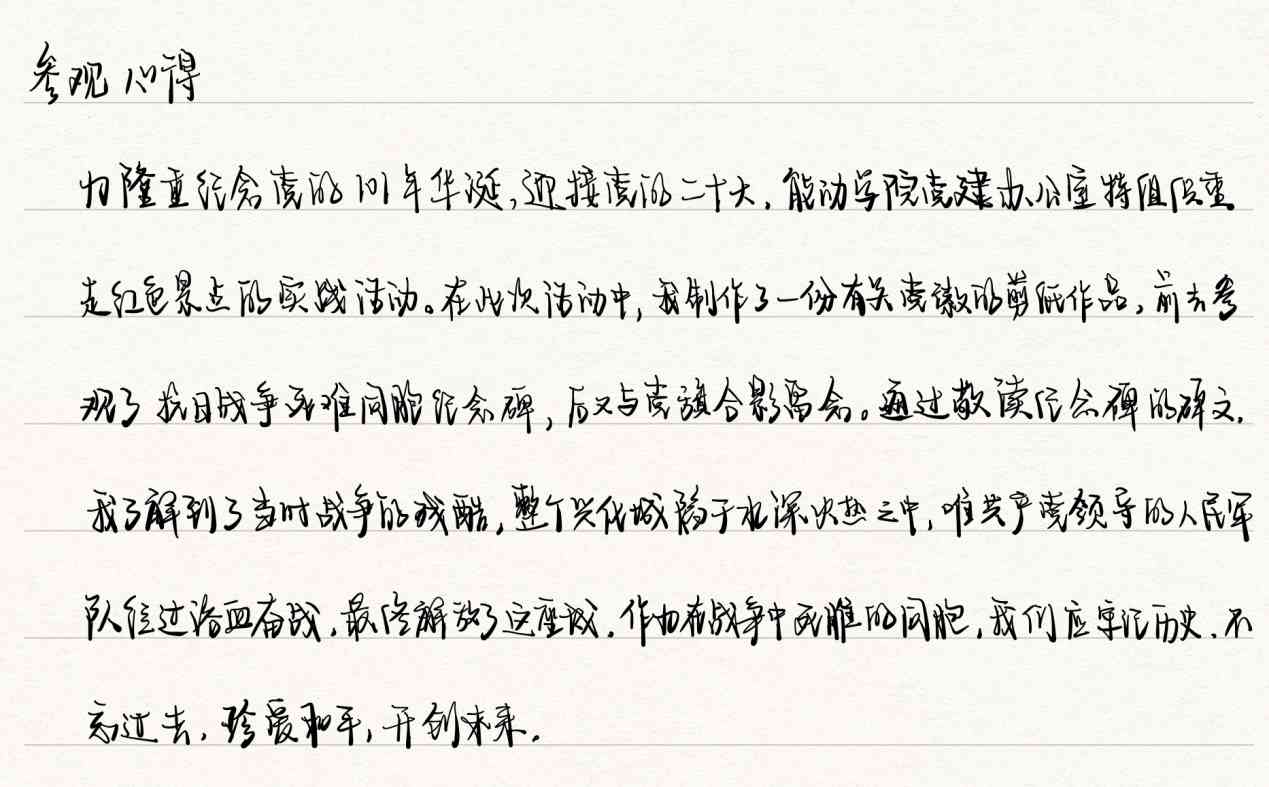 参观心得
为隆重纪念党的101年华诞,迎接党的二十大,能动学院党建办公室特组织重
走红色景点的实践活动。在此次活动中,我制作了一份有关党徽的剪纸作品,前去参
观了抗日战争死难同胞纪念碑,后又与党旗合影留念。通过敬读纪念碑的碑文,
我了解到了当时战争的残酷,整个兴化城陷于水深火热之中,唯共产党领导的人民军
队经过浴血奋战,最终解放了这座城。作为在战争中死难的同胞,我们应牢记历史,不
忘过去,珍爱和平,开创未来。